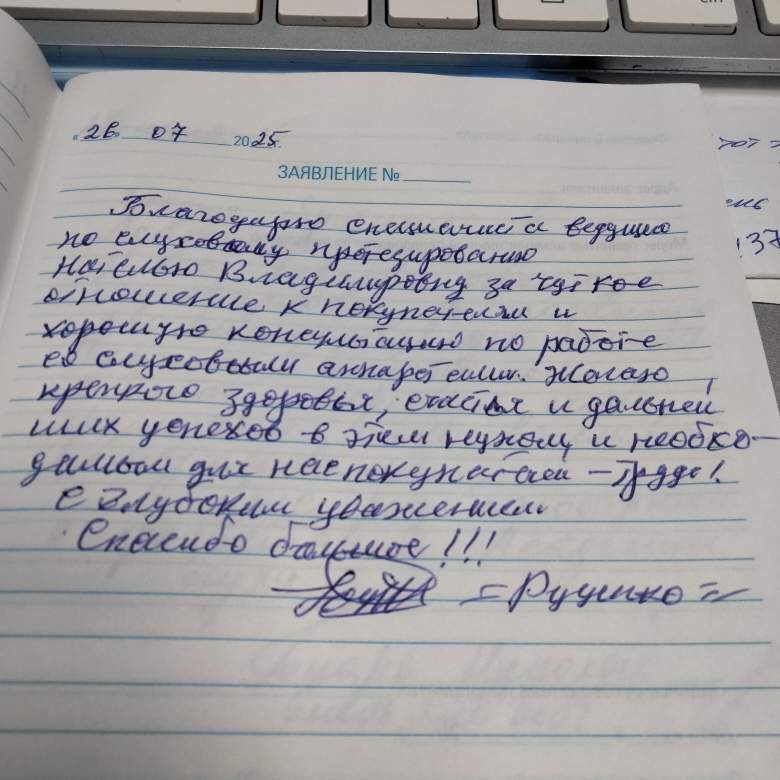 «26» 07 2025г.
ЗАЯВЛЕНИЕ №
Благодарю специалиста ведущего
по слуховому протезированию
Наталью Владимировну за чуткое
отношение к покупателям и
хорошую консультацию по работе
со слуховыми аппаратами. Желаю
крепкого здоровья, счастья и дальней
ших успехов в этом нужном и необхо-
димым для нас покупателей – труде!
С глубоким уважением.
Спасибо большое!!!
= Руценко =